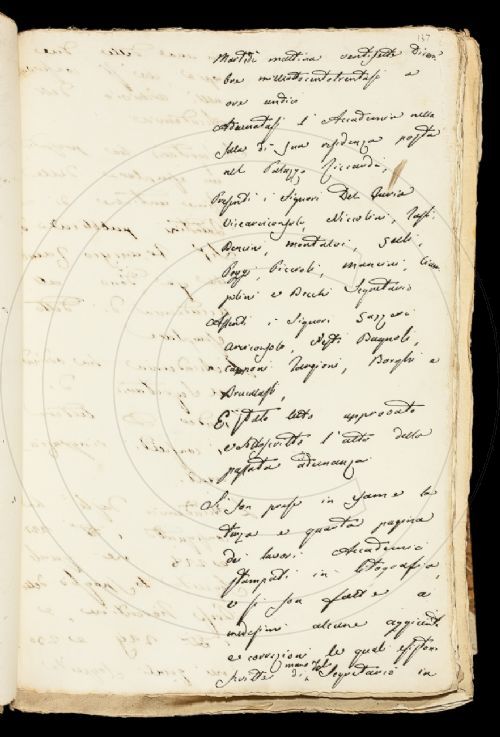 137
Martedì mattina ventisette Dicem-
bre milleottocentotrentasei a
ore undici
Adunatasi l'Accademia nella
Sala di sua residenza posta
nel Palazzo Riccardi,
Presenti i Signori Del Furia
Vicearciconsolo, Niccolini,
Bencini, Montalvi, Salvi,
Poggi, Piccioli, Mancini, Ciam-
polini e Becchi Segretario
Assenti i Signori Gazzeri
Arciconsolo, Nesti Bagnoli,
Capponi Targioni, Borghi e
Bracaloni,
È stato letto approvato
e sottoscritto l'atto della
passata adunanza
Si son prese in esame la
terza e quarta pagina
dei lavori Accademici
stampati in litografia,
e si son fatte a
medesimi alcune aggiunte
e correzioni le quali esistono
scritte di mano del Segretario in